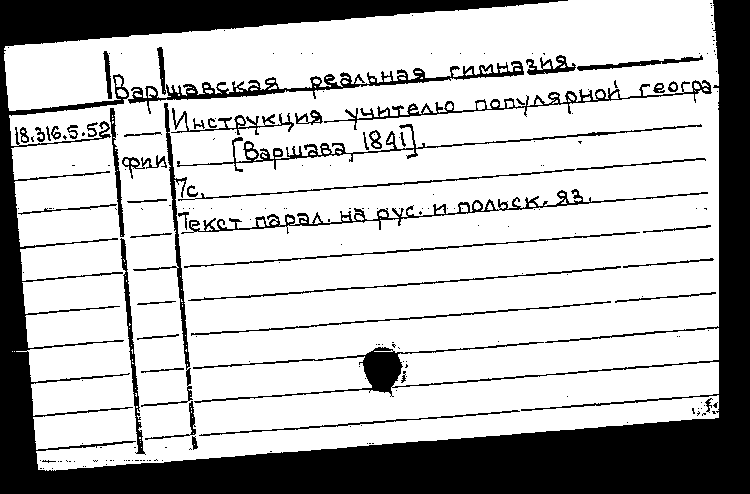 Варшавская реальная гимназия.
18.316.5.52 Инструкция учителю популярной геогра-
фии. [Варшава, 1841].
7с.
Текст парал. на рус. и польск. яз.